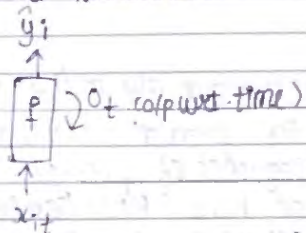 ŷi
f
O_t (o/p wrt. time)
x_it